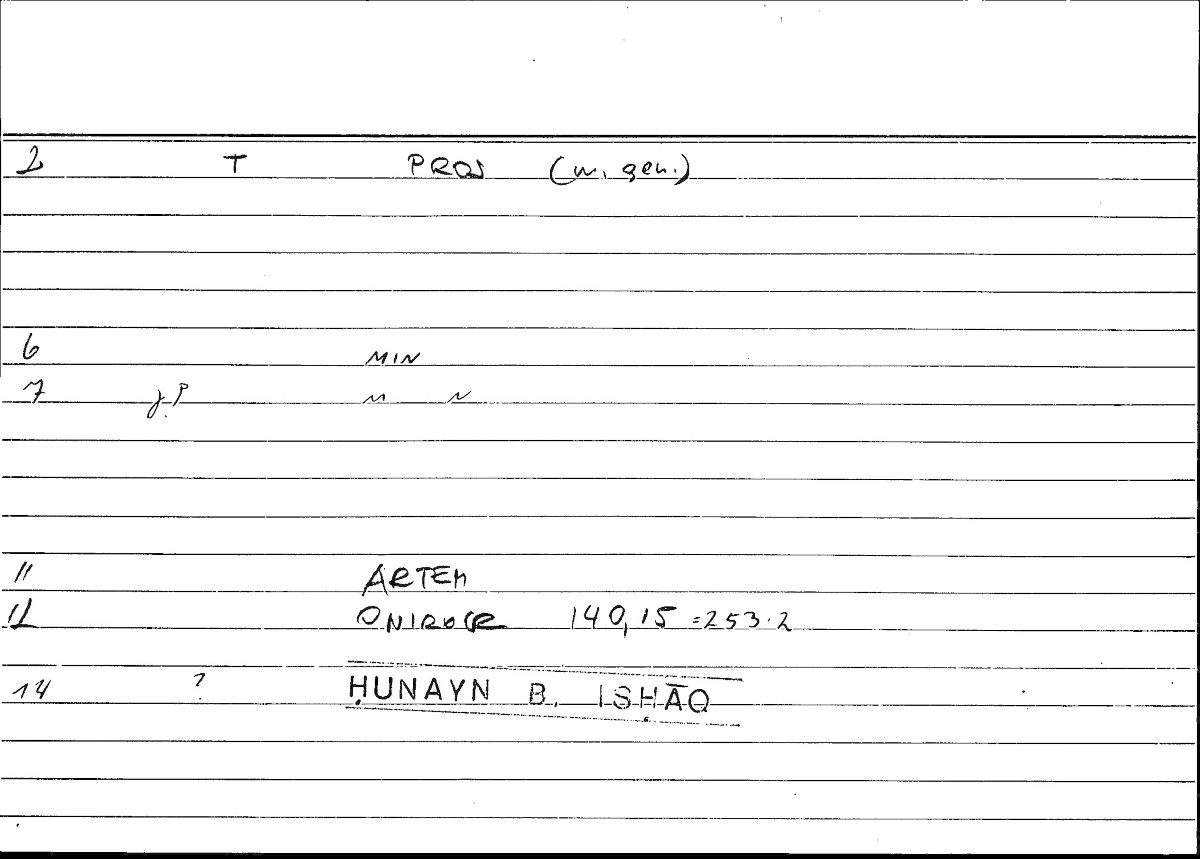 2 T PROS (w. gen.)
6 MIN
7 j.P M N
11 ARTEM
12 ONIROCR 140,15 =253.2
14 ? ḤUNAYN B. ISḤĀQ